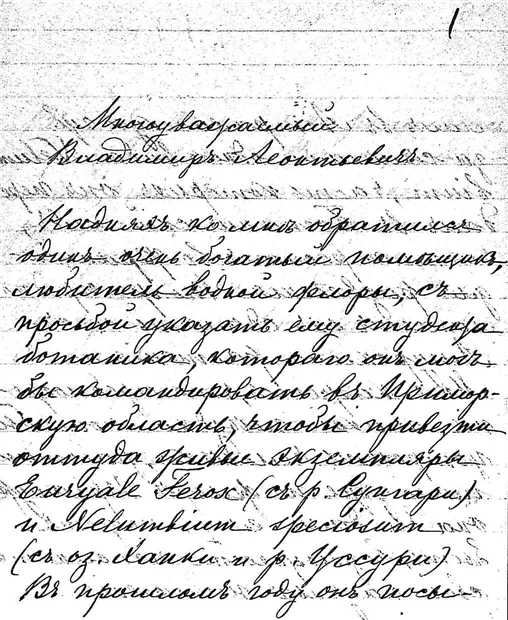 1
Многоуважаемый
Владимиръ Леонтьевичъ
Надняхъ ко мнѣ обратился
одинъ очень богатый помѣщикъ,
любитель водной флоры, съ
просьбой указать ему студента
ботаника, котораго онъ могъ
бы командировать въ Примор-
скую область, чтобы привезти
оттуда живые экземпляры
Euryale Ferox (съ р. Сунгари)
и Nelumbium speciosum
(съ оз. Ханки и р. Уссури)
Въ прошломъ году онъ посы-